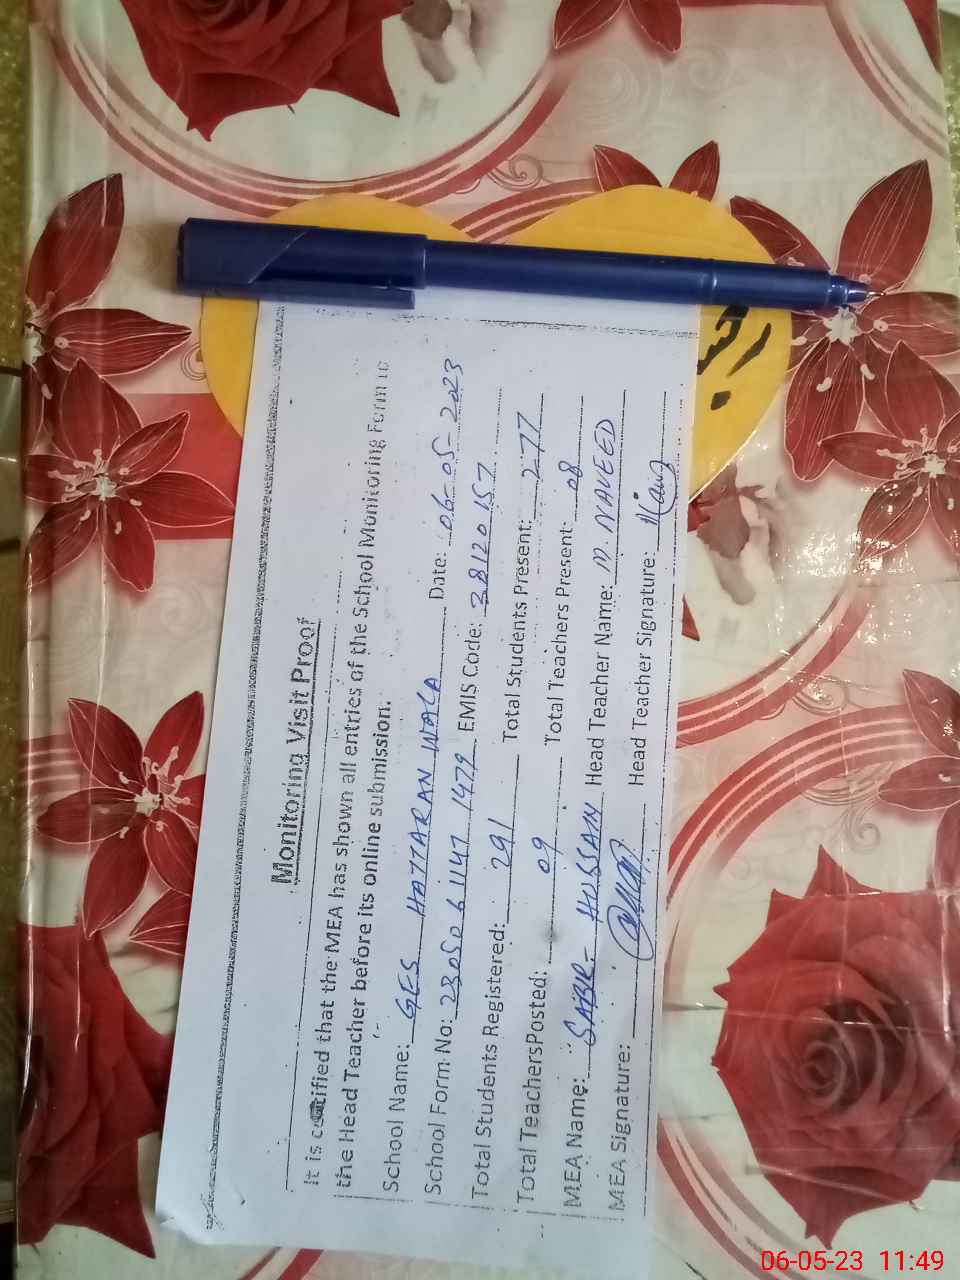 Monitoring Visit Proof
It is certified that the MEA has shown all entries of the School Monitoring Form to
the Head Teacher before its online submission.
School Name: GES HATTARAN WALA Date: 06-05-2023
School Form No: 230506 1147 1479 EMIS Code: 38120157
Total Students Registered: 291 Total Students Present: 277
Total TeachersPosted: 09 Total Teachers Present: 08
MEA Name: SABIR HUSSAIN Head Teacher Name: M. NAVEED
MEA Signature: Head Teacher Signature:
06-05-23 11:49